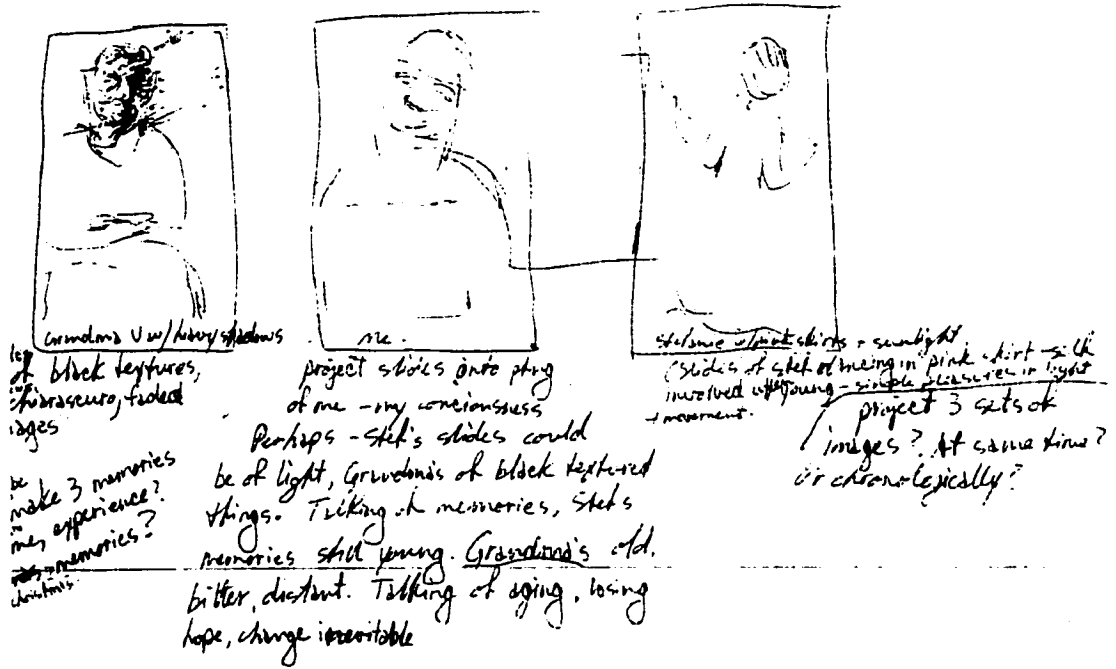 Grandma V w/ heavy shadows
of black textures,
chiarascuro, faded
images
be
make 3 memories
me, experience?
memories?
christmas
me.
project slides onto
of me - my conciousness
Perhaps - Stef's slides could
be of light, Grandma's of black textured
things. Talking of memories, Stef's
memories still young. Grandma's old,
bitter, distant. Talking of aging, losing
hope, change inevitable
skirts + sunlight
(slides of Stef dancing in pink skirt - silk
involved young - simple pleasures in light
+ movement.
project 3 sets of
images? At same time?
Or chronologically?